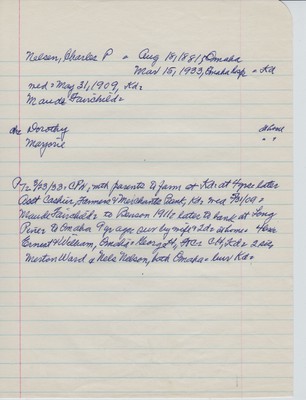 Nelsen, Charles P - Aug 18, 1881, Omaha
Mar 15, 1933, Omaha hosp = Kd
med = May 31, 1909, Kd=
Maude Fairchild=
chr Dorothy at home
Marjorie " "
PT= 3/23/33: CPN, with parents to farm at Kd= at 4 yrs= later
Asst Cashier, Farmers & Merchants Bank, Kd= med
Maude Fairchild= to Benson 1911= later to bank at Long
Pine= to Omaha 9 yr ago= sur by wife & 2 d= at home= 4 bro
Ernest & William, Omaha= George H, = CH, Kd= 2 sis,
Merton Ward & Nels Nelson, both Omaha= bur Kd=